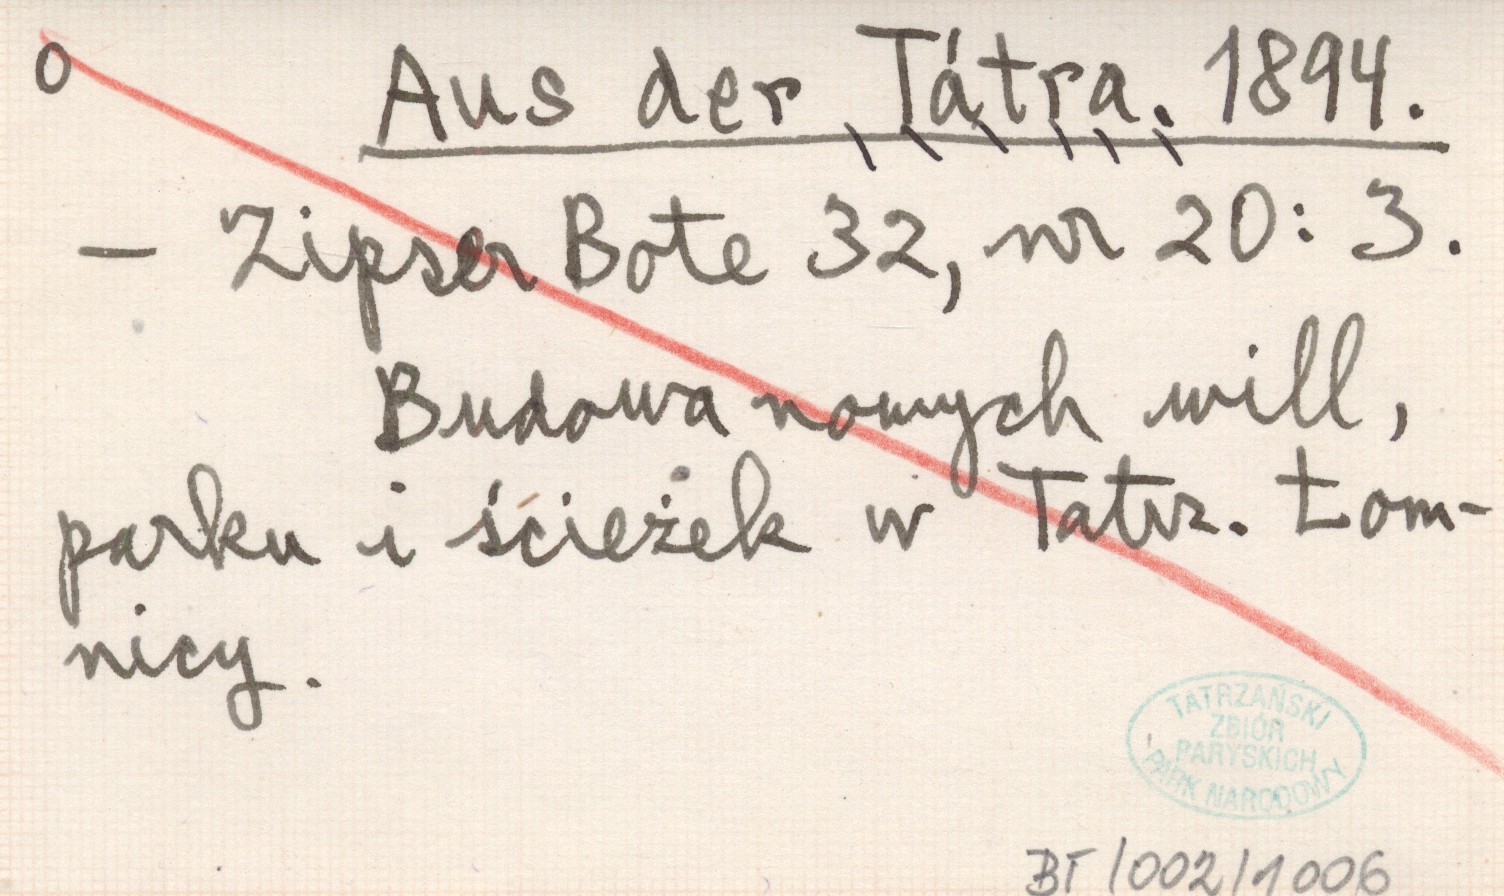 o
Aus der Tátra. 1894.
— Zipser Bote 32, nr 20: 3.
Budowa nowych will,
parku i ścieżek w Tatrz. Łom-
nicy.
TATRZAŃSKI
ZBIÓR
PARYSKICH
PARK NARODOWY
BT/002/1006